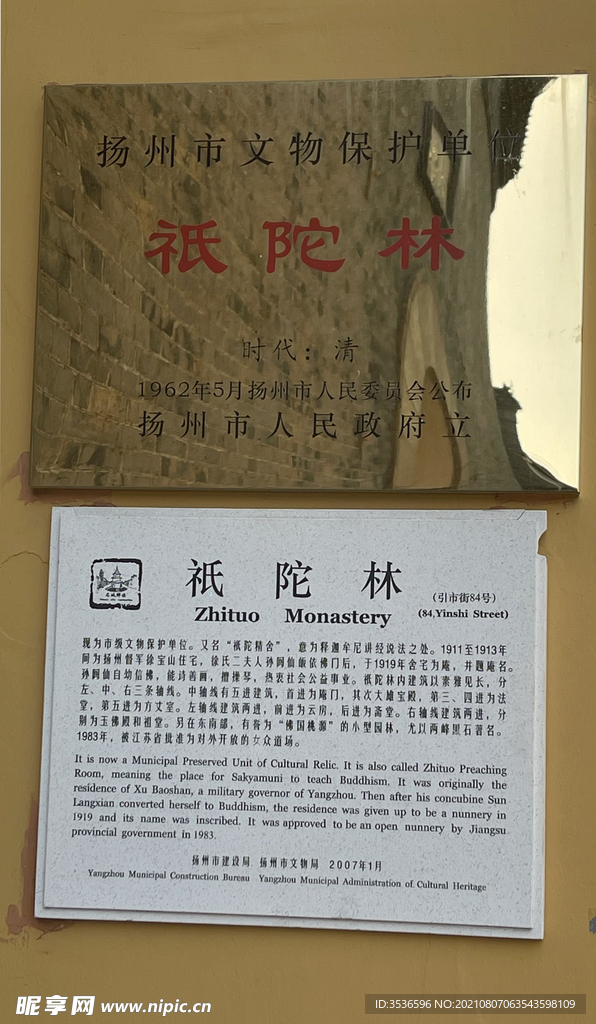 扬州市文物保护单位
祇陀林
时代：清
1962年5月扬州市人民委员会公布
扬州市人民政府立
祇陀林
（引市街84号）
Zhituo Monastery
(84,Yinshi Street)
现为市级文物保护单位。又名“祇陀精舍”，意为释迦牟尼讲经说法之处。1911至1913年
间为扬州督军徐宝山住宅，徐氏二夫人孙阆仙皈依佛门后，于1919年舍宅为庵，并题庵名。
孙阆仙自幼信佛，能诗善画，擅操琴，热衷社会公益事业。祇陀林内建筑以素雅见长，分
左、中、右三条轴线。中轴线有五进建筑，首进为庵门，其次大雄宝殿，第三、四进为法
堂，第五进为方丈室。左轴线建筑两进，前进为云房，后进为斋堂。右轴线建筑两进，分
别为玉佛殿和祖堂。另在东南部，有誉为“佛国桃源”的小型园林，尤以两峰黑石著名。
1983年，被江苏省批准为对外开放的女众道场。
It is now a Municipal Preserved Unit of Cultural Relic. It is also called Zhituo Preaching
Room, meaning the place for Sakyamuni to teach Buddhism. It was originally the
residence of Xu Baoshan, a military governor of Yangzhou. Then after his concubine Sun
Langxian converted herself to Buddhism, the residence was given up to be a nunnery in
1919 and its name was inscribed. It was approved to be an open nunnery by Jiangsu
provincial government in 1983.
扬州市建设局 扬州市文物局 2007年1月
Yangzhou Municipal Construction Bureau Yangzhou Municipal Administration of Cultural Heritage
昵享网 www.nipic.cn
ID:3536596 NO:20210807063543598109